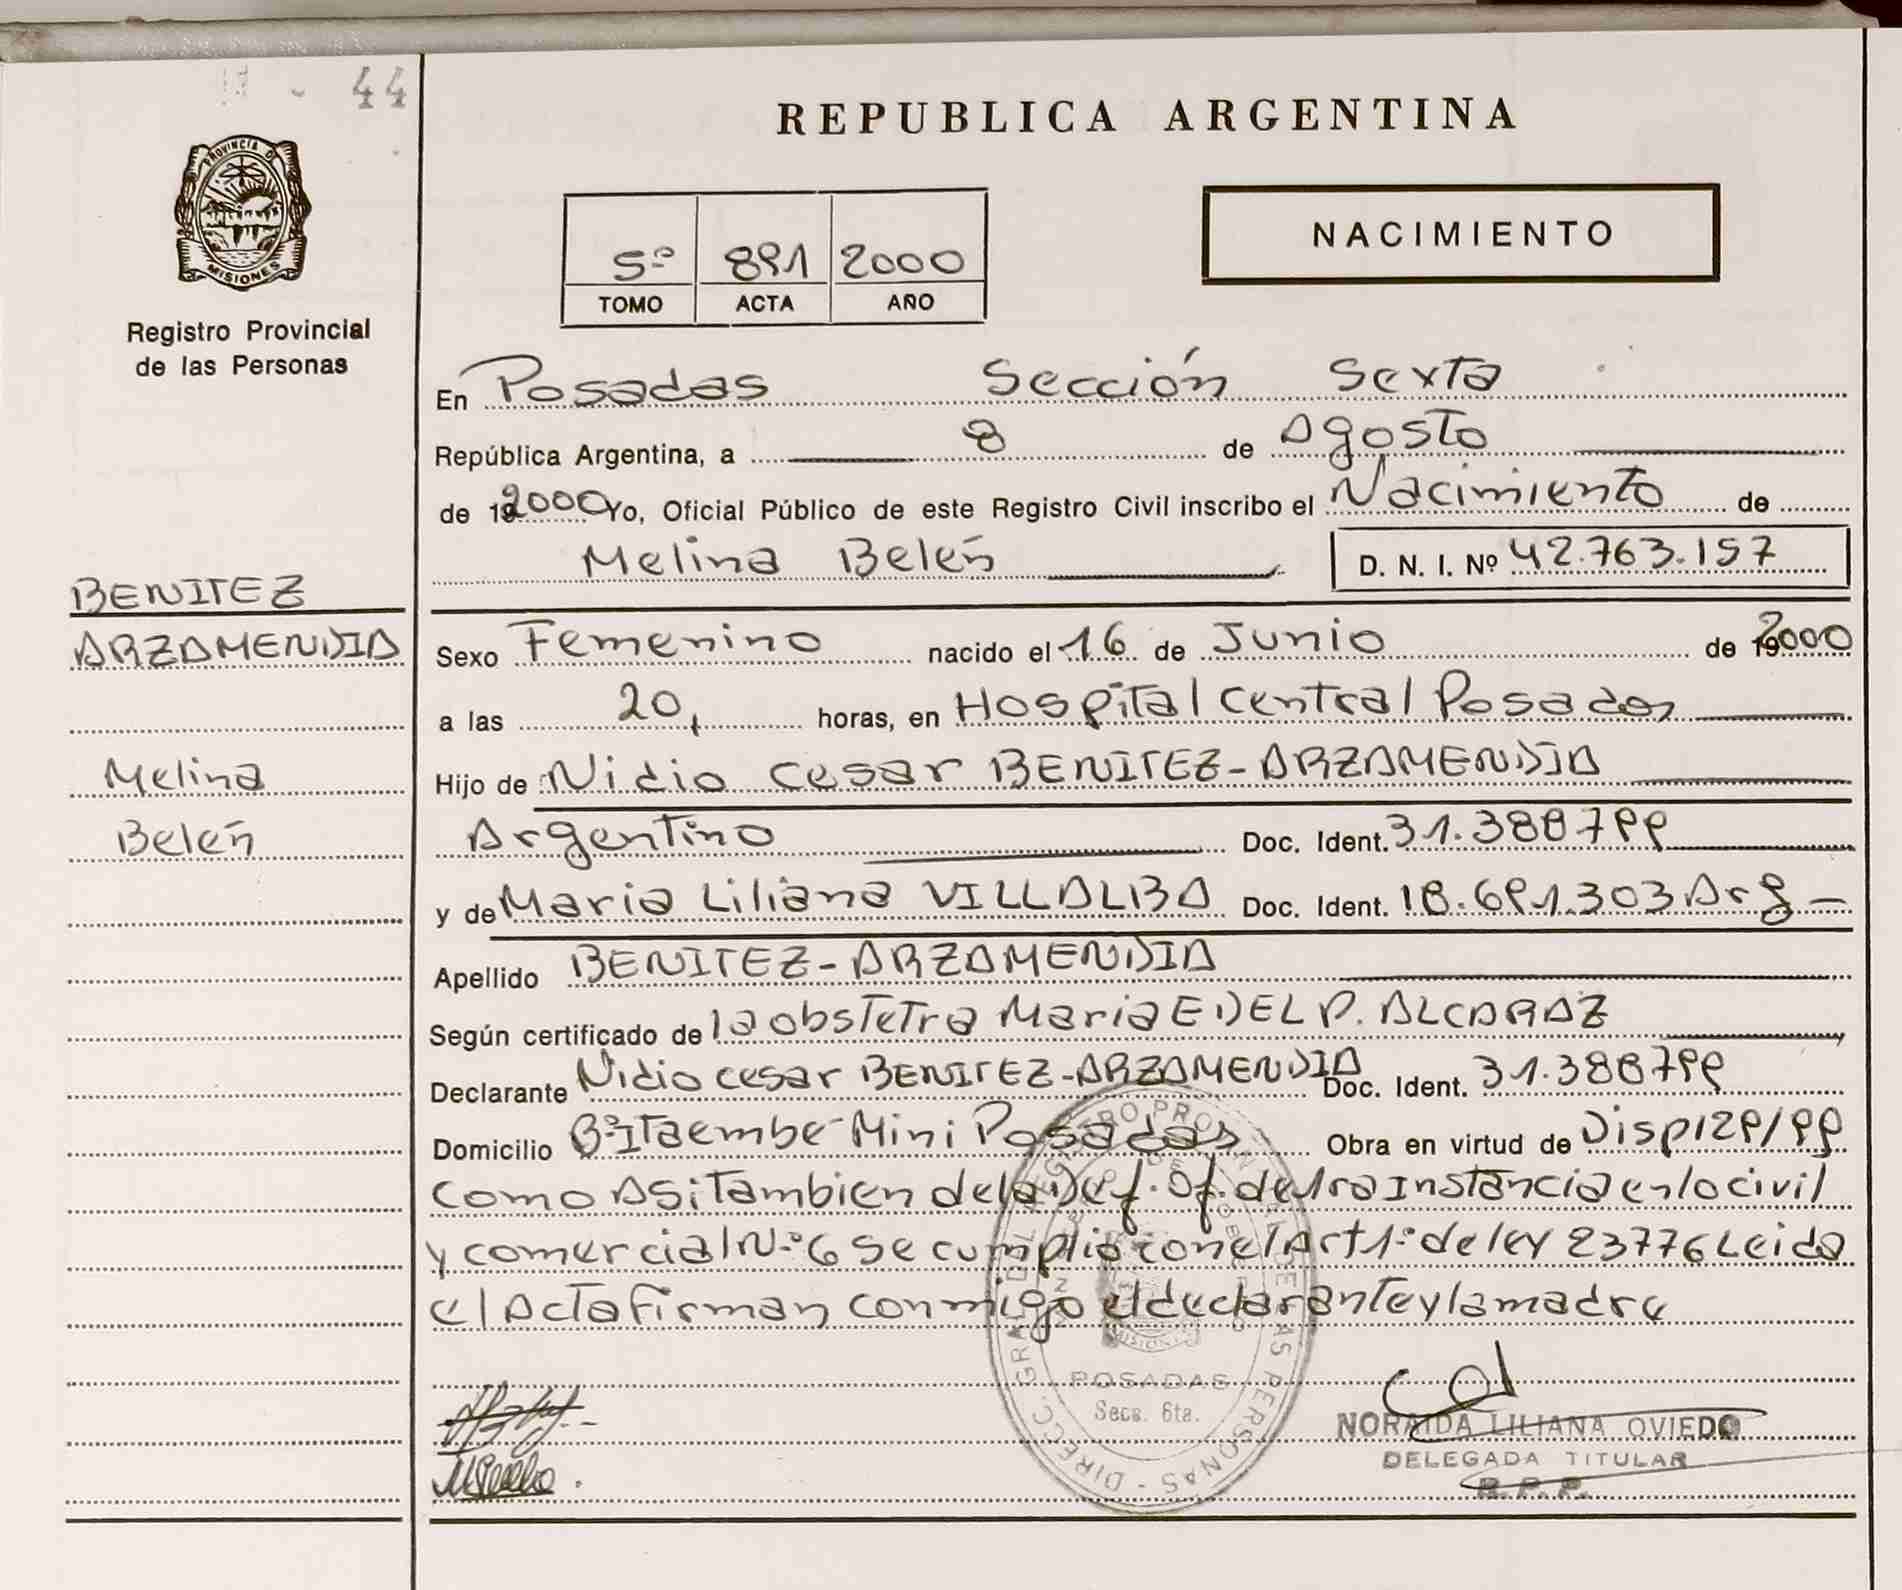 44
PROVINCIA DE
MISIONES
Registro Provincial
de las Personas
BENITEZ
ARZAMENDIA
Melina
Belén
REPUBLICA ARGENTINA
5º 891 2000
TOMO ACTA AÑO
NACIMIENTO
En Posadas Sección Sexta
República Argentina, a 8 de Agosto
de 192000 Yo, Oficial Público de este Registro Civil inscribo el Nacimiento de
Melina Belén D. N. I. Nº 42.763.157
Sexo Femenino nacido el 16 de Junio de 192000
a las 20, horas, en Hospital Central Posadas
Hijo de Nidio Cesar BENITEZ-ARZAMENDIA
Argentino Doc. Ident. 31.388799
y de Maria Liliana VILLALBA Doc. Ident. 18.691.303 Arg
Apellido BENITEZ-ARZAMENDIA
Según certificado de la obstetra Maria E DEL P. ALCARAZ
Declarante Nidio Cesar BENITEZ-ARZAMENDIA Doc. Ident. 31.388799
Domicilio Bº Itaembe Mini Posadas Obra en virtud de Disp 129/99
como Asi Tambien de la Def. Of. de 1ra Instancia en lo civil
y comercial N.º 6 se cumplio con el Art 1º de ley 23776 Leida
el Acta firman conmigo el declarante y la madre
DIRECC. GRAL. DEL REGISTRO PROVINCIAL DE LAS PERSONAS
MISIONES
POSADAS
Secc. 6ta.
NORAIDA LILIANA OVIEDO
DELEGADA TITULAR
R. P. P.